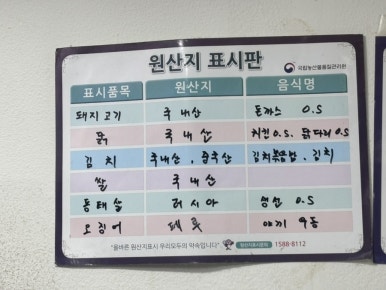 원산지 표시판
국립농산물품질관리원
표시품목 원산지 음식명
돼지고기 국내산 돈까스 O.S
닭 국내산 치킨 O.S, 닭다리 O.S
김치 국내산, 중국산 김치볶음밥, 김치
쌀 국내산
동태살 러시아 생선 O.S
오징어 페루 야끼우동
"올바른 원산지표시 우리모두의 약속입니다" 원산지표시문의 1588-8112